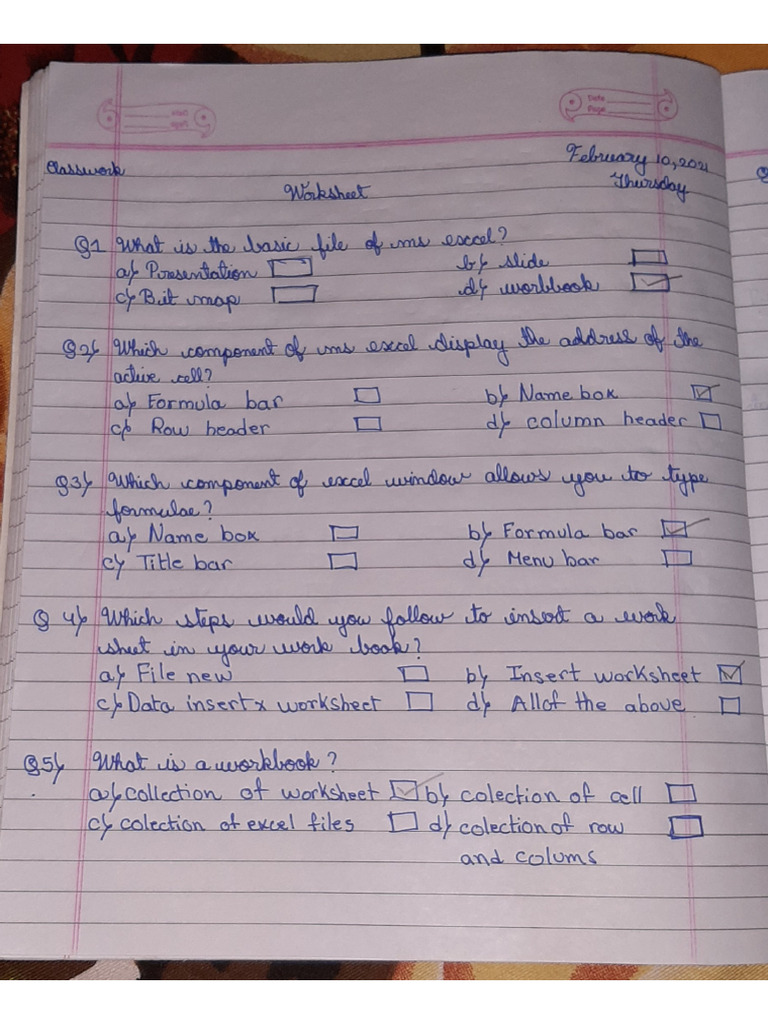 Date
Page
Date
Page
Classwork
February 10, 2021
Thursday
Worksheet
Q1 What is the basic file of ms excel?
a) Presentation b) slide
c) Bit map d) workbook
Q2) Which component of ms excel display the address of the
active cell?
a) Formula bar b) Name box
c) Row header d) column header
Q3) Which component of excel window allows you to type
formulae?
a) Name box b) Formula bar
c) Title bar d) Menu bar
Q 4) Which steps would you follow to insert a work
sheet in your work book?
a) File new b) Insert worksheet
c) Data insert x worksheet d) All of the above
Q5) What is a workbook?
a) collection of worksheet b) colection of cell
c) colection of excel files d) colection of row
and colums